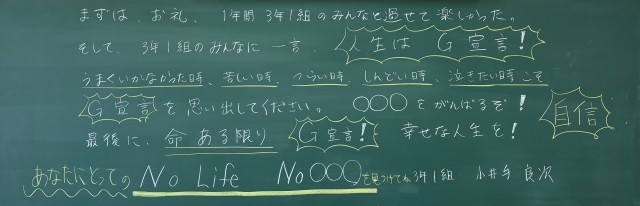 まずは、お礼、1年間 3年1組のみんなと過せて楽しかった。
そして、3年1組のみんなに一言、人生は G宣言!
うまくいかなかった時、苦しい時、つらい時、しんどい時、泣きたい時こそ
G宣言を思い出してください。 ○○○をがんばるぞ! 自信
最後に、命ある限り G宣言! 幸せな人生を!
あなたにとっての No Life No○○○を見つけてね 3年1組 小井手 良次